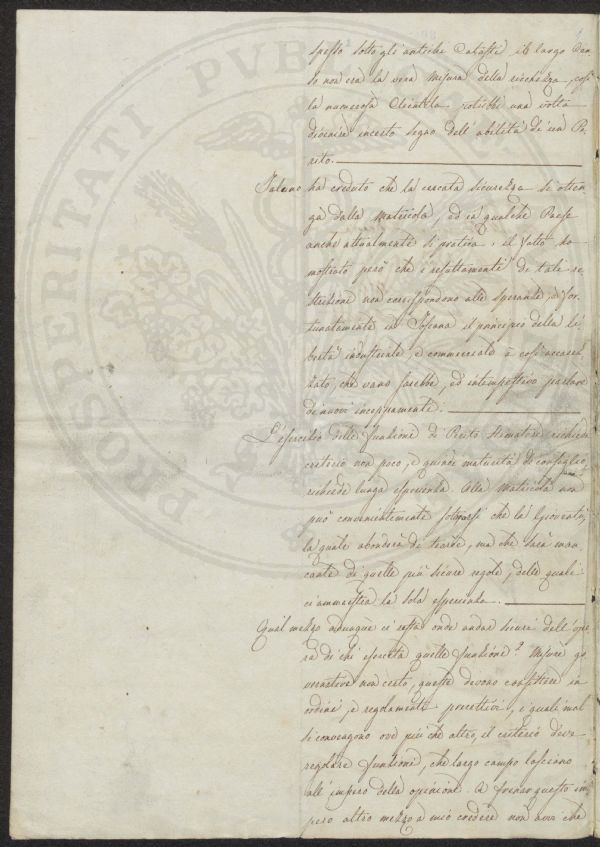 spesso sotto gli antichi Catasti il largo Cen
so non era la vera misura della ricchezza, così
la numerosa Clientela potrebbe una volta
divenire incerto segno dell'abilità di un Pe
rito.
Taluno ha creduto che la cercata sicurezza si otten
ga dalla Matricola, ed in qualche Paese
anche attualmente si pratica. il fatto ha
mostrato però che i resultamenti di tale re
strizione non corrispondono alle speranze, e for
tunatamente in Toscana il principio della li
bertà industriale, e commerciale è così accarez
zato, che vano sarebbe, ed intempestivo parlare
di nuovi inceppamenti.
L'esercizio delle funzione di Perito Stimatore richiede
criterio non poco, e quindi maturità di consiglio
richiede lunga esperienza. Alla Matricola non
può convenientemente che la Gioventù,
la quale abonderà di teorie, ma che sarà man
cante di quelle più sicure regole, delle quali
ci ammaestra la sola esperienza.
Qual mezzo adunque ci resta onde andar sicuri dell'ope
ra di chi esercita quelle funzione? Misure go
vernative non certo, queste devono consistere in
ordini, e regolamenti precettivi, i quali mal
si convengono ove più che altro, il criterio deve
regolare funzione, che largo campo lasciano
all'impero della opinione. A frenar questo im
pero altro mezzo a mio credere non avvi che
PROSPERITATI PVB